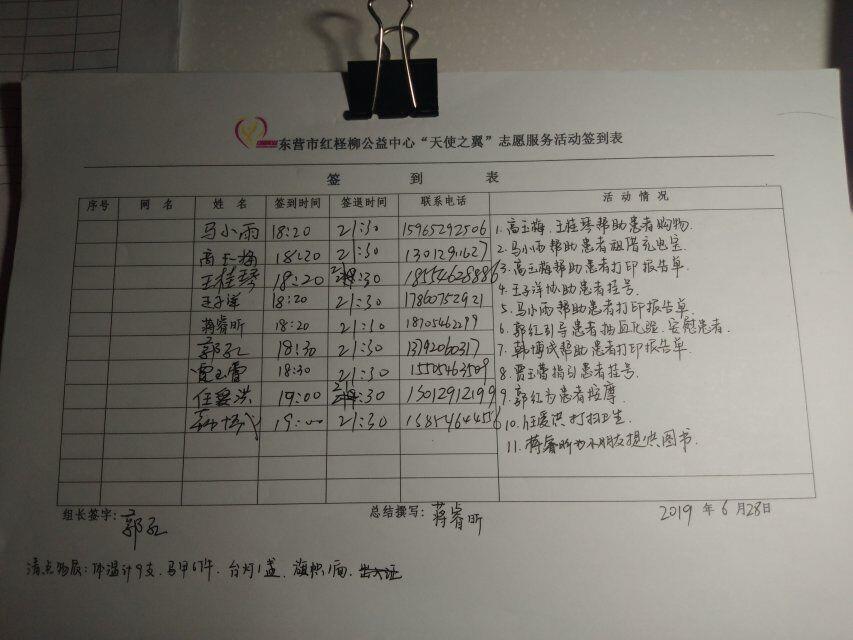 东营市红柽柳公益中心“天使之翼”志愿服务活动签到表
签 到 表
序号 网 名 姓 名 签到时间 签退时间 联系电话 活 动 情 况
马小雨 18:20 21:30 15965292506
高玉梅 18:20 21:30 13012911627
王桂琴 18:20 21:30 18554628886
王子洋 18:20 21:30 17860752921
蒋睿昕 18:20 21:30 18705462299
郭红 18:30 21:30 13792060317
贾玉蕾 18:30 21:30 15505463509
任爱洪 19:00 21:30 15012912199
韩博成 19:00 21:30
1. 高玉梅、王桂琴帮助患者购物.
2. 马小雨帮助患者租借充电宝
3. 高玉梅帮助患者打印报告单.
4. 王子洋协助患者挂号.
5. 马小雨帮助患者打印报告单.
6. 郭红引导患者抽血化验、安慰患者.
7. 韩博成帮助患者打印报告单.
8. 贾玉蕾指引患者挂号.
9. 郭红为患者按摩
10. 任爱洪打扫卫生
11. 蒋睿昕为小朋友提供图书.
组长签字: 郭红 总结撰写: 蒋睿昕 2019 年 6 月28日
清点物资: 体温计9支、马甲67件、台灯1盏、旗帜1面、出入证